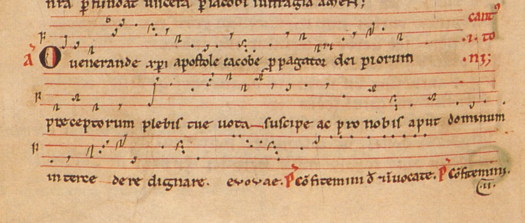 ura p̄fundat uiscera p̄ iacobi suffragia amen;
cant⁹
.i. to
Aᷓ O uenerande xp̄i apostole iacobe ꝓpagator dei piorum .ni;
preceptorum plebis tue uota suscipe ac pro nobis aput dominum
interce dere dignare. evovae. P̄ Cōfitemini d̄ ⁊ īuocate. P̄ Cōfitemini.
.ii.